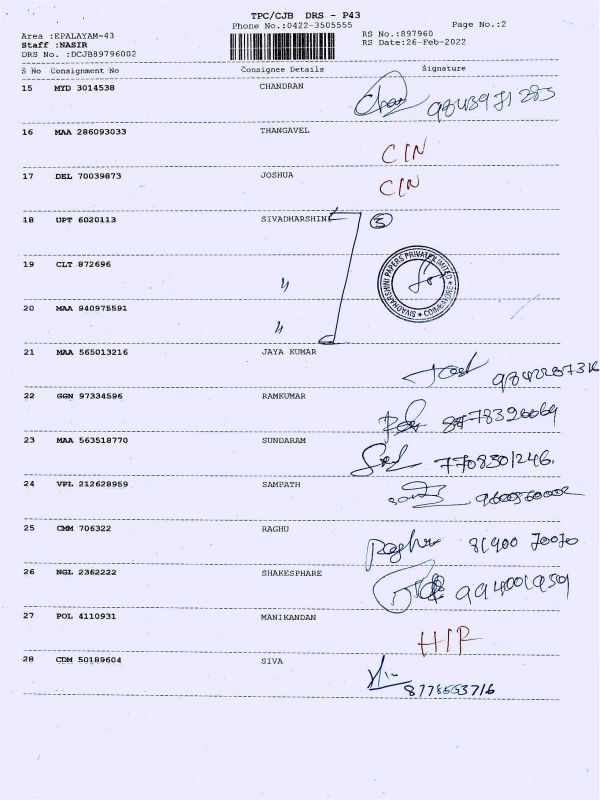 TPC/CJB DRS - P43
Phone No.:0422-3505555 Page No.:2
Area :EPALAYAM-43 RS No.:897960
Staff :NASIR RS Date:26-Feb-2022
DRS No. :DCJB89796002
S No Consignment No Consignee Details Signature
15 MYD 3014538 CHANDRAN
16 MAA 286093033 THANGAVEL
CIN
17 DEL 70039873 JOSHUA
CIN
18 UPT 6020113 SIVADHARSHINI 3
19 CLT 872696 〃
SIVADHARSHINI PAPERS PRIVATE LIMITED * COIMBATORE *
20 MAA 940975591 〃
21 MAA 565013216 JAYA KUMAR
22 GGN 97334596 RAMKUMAR
23 MAA 563518770 SUNDARAM
7708301246.
24 VPL 212628959 SAMPATH
25 CMM 706322 RAGHU
Raghu 81900 70070
26 NGL 2362222 SHAKESPHARE
994001959
27 POL 4110931 MANIKANDAN
28 CDM 50189604 SIVA